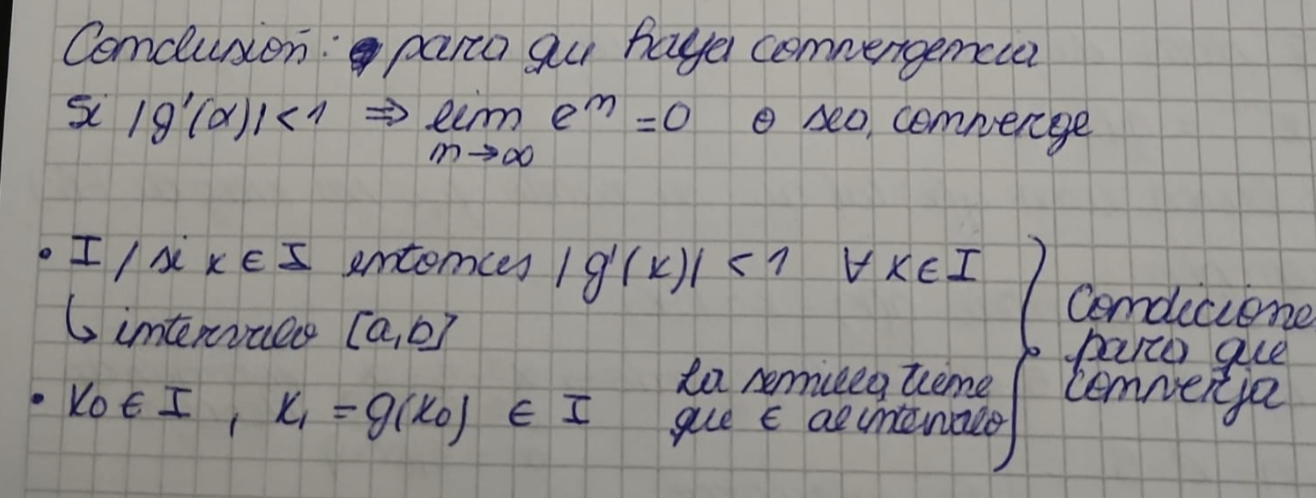 Conclusión: para qu haya convergencia
Si |g'(α)| < 1 ⇒ lim e^n = 0 o sea, converge
n→∞
• I / si x ∈ I entonces |g'(x)| < 1 ∀ x ∈ I
↳ intervalo [a,b]
• x₀ ∈ I , x₁ = g(x₀) ∈ I
La semilla tiene
que ∈ al intervalo
Condicione
para que
converja